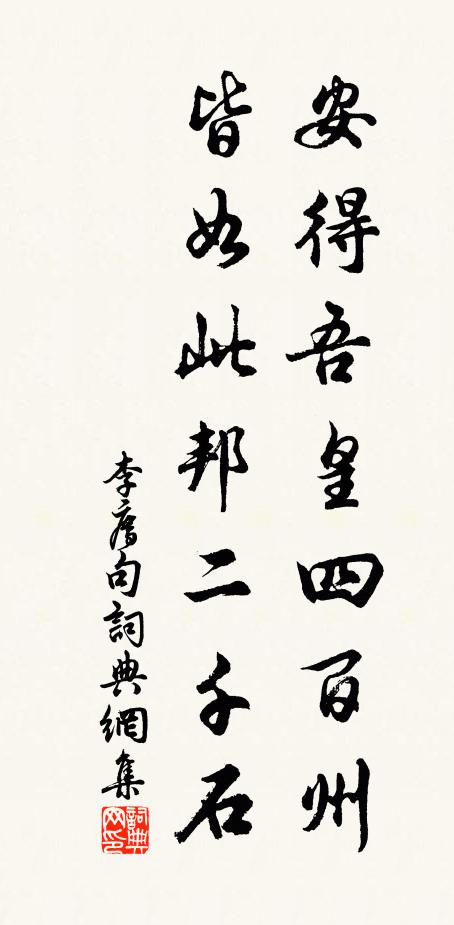 安得吾皇四百州
皆如此邦二千石
李廌句詞典網集
詞典网印